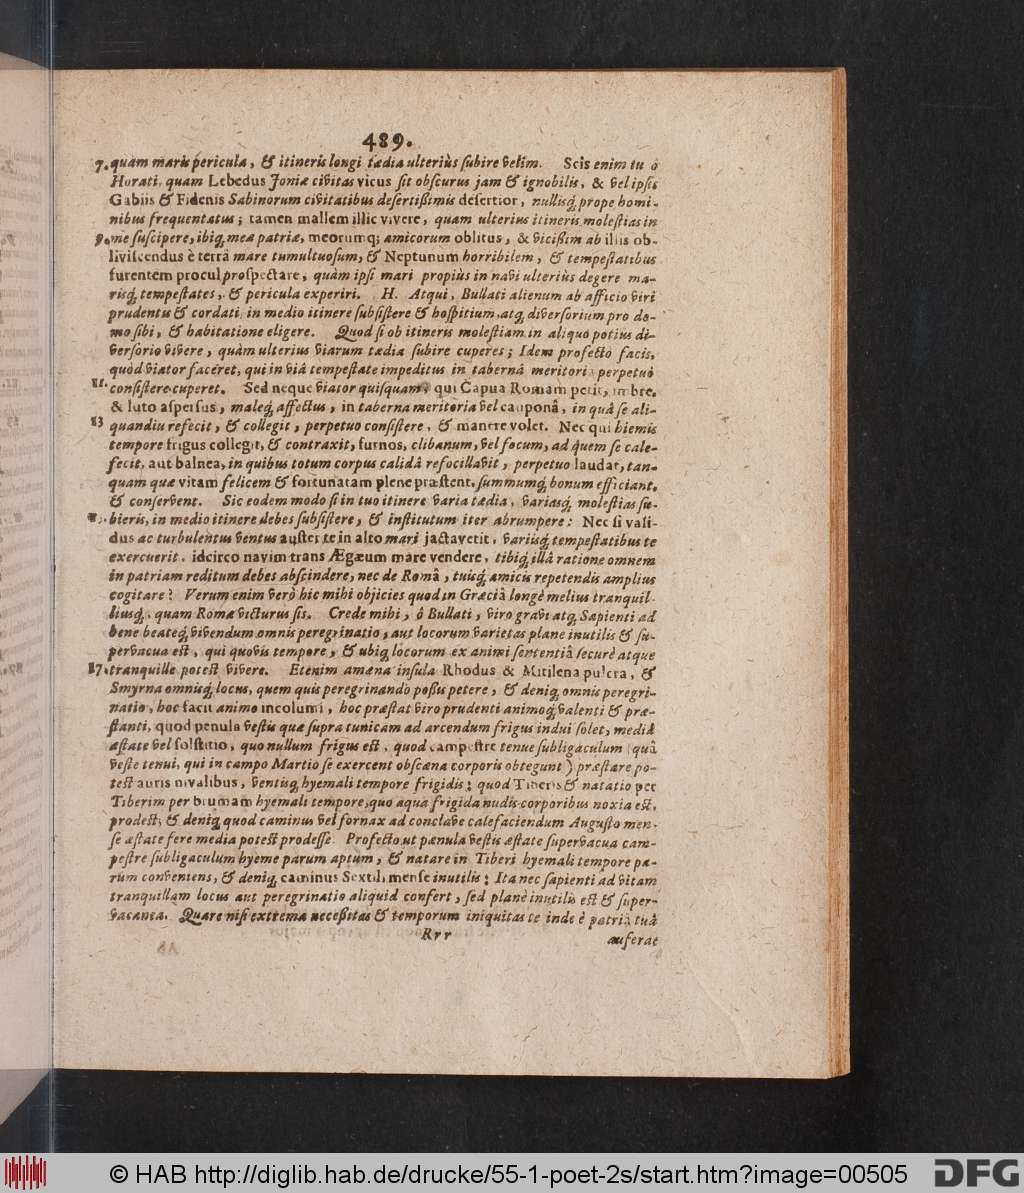 489.
7. quam maris pericula, & itineris longi tædia ulteriùs ſubire velim. Scis enim tu ô
Horati, quam Lebedus Joniæ civitas vicus ſit obſcurus jam & ignobilis, & vel ipſis
Gabiis & Fidenis Sabinorum civitatibus deſertißimis deſertior, nullisq́; prope homi-
nibus frequentatus; tamen mallem illic vivere, quam ulterius itineris moleſtias in
9. me ſuſcipere, ibiq́; meæ patriæ, meorumq; amicorum oblitus, & vicißim ab illis ob-
liviſcendus è terrâ mare tumultuoſum, & Neptunum horribilem, & tempeſtatibus
furentem procul proſpectare, quàm ipſi mari propiùs in navi ulteriùs degere ma-
risq́; tempeſtates, & pericula experiri. H. Atqui, Bullati alienum ab afficio viri
prudentis & cordati, in medio itinere ſubſiſtere & hoſpitium, atq́; diverſorium pro do-
mo ſibi, & habitatione eligere. Quod ſi ob itineris moleſtiam in aliquo potius di-
verſorio vivere, quàm ulterius viarum tædia ſubire cuperes; Idem profectò facis,
quod viator faceret, qui in viâ tempeſtate impeditus in tabernâ meritoriâ perpetuò
11. conſiſtere cuperet. Sed neque viator quiſquam, qui Capua Romam petit, imbre,
& luto aſperſus, maleq́; affectus, in taberna meritoria vel cauponâ, in quâ ſe ali-
13 quandiu refecit, & collegit, perpetuo conſiſtere, & manere volet. Nec qui hiemis
tempore frigus collegit, & contraxit, furnos, clibanum, vel focum, ad quem ſe cale-
fecit, aut balnea, in quibus totum corpus calidâ refocillavit, perpetuo laudat, tan-
quam quæ vitam felicem & fortunatam plene præſtent, ſummumq́; bonum efficiant,
& conſervent. Sic eodem modo ſi in tuo itinere varia tædia, variasq́; moleſtias ſu-
bieris, in medio itinere debes ſubſiſtere, & inſtitutum iter abrumpere: Nec ſi vali-
dus ac turbulentus ventus auſter te in alto mari jactaverit, variisq́; tempeſtatibus te
exercuerit, idcirco navim trans Ægæum mare vendere, tibiq́; illâ ratione omnem
in patriam reditum debes abſcindere, nec de Româ, tuisq́; amicis repetendis amplius
cogitare? Verum enim verò hic mihi objicies quod in Græciâ longè melius tranquil-
liusq́;, quam Romæ victurus ſis. Crede mihi, ô Bullati, viro gravi atq́; Sapienti ad
bene beateq́; vivendum omnis peregrinatio, aut locorum varietas plane inutilis & ſu-
pervacua eſt, qui quovis tempore, & ubiq́; locorum ex animi ſententiâ ſecurè atque
17. tranquille poteſt vivere. Etenim amæna inſula Rhodus & Mitilena pulcra, &
Smyrna omnisq́; locus, quem quis peregrinando poßit petere, & deniq́; omnis peregri-
natio, hoc facit animo incolumi, hoc præſtat viro prudenti animoq́; valenti & præ-
ſtanti, quod penula veſtis quæ ſupra tunicam ad arcendum frigus indui ſolet, mediâ
æſtate vel ſolſtitio, quo nullum frigus eſt, quod campeſtre tenue ſubligaculum (quâ
veſte tenui, qui in campo Martio ſe exercent obſcæna corporis obtegunt) præſtare po-
teſt auris nivalibus, ventisq́; hyemali tempore frigidis; quod Tiberis & natatio per
Tiberim per brumam hyemali tempore, quo aqua frigida nudis corporibus noxia eſt,
prodeſt; & deniq́; quod caminus vel fornax ad conclave calefaciendum Auguſto men-
ſe æſtate fere media poteſt prodeſſe. Profecto ut pænula veſtis æſtate ſupervacua cam-
peſtre ſubligaculum hyeme parum aptum, & natare in Tiberi hyemali tempore pa-
rum conveniens, & deniq́; caminus Sextili menſe inutilis; Ita nec ſapienti ad vitam
tranquillam locus aut peregrinatio aliquid confert, ſed planè inutilis eſt & ſuper-
vacanea. Quare niſi extrema neceßitas & temporum iniquitas te inde è patriâ tuâ
Rrr
auferat
© HAB http://diglib.hab.de/drucke/55-1-poet-2s/start.htm?image=00505
DFG